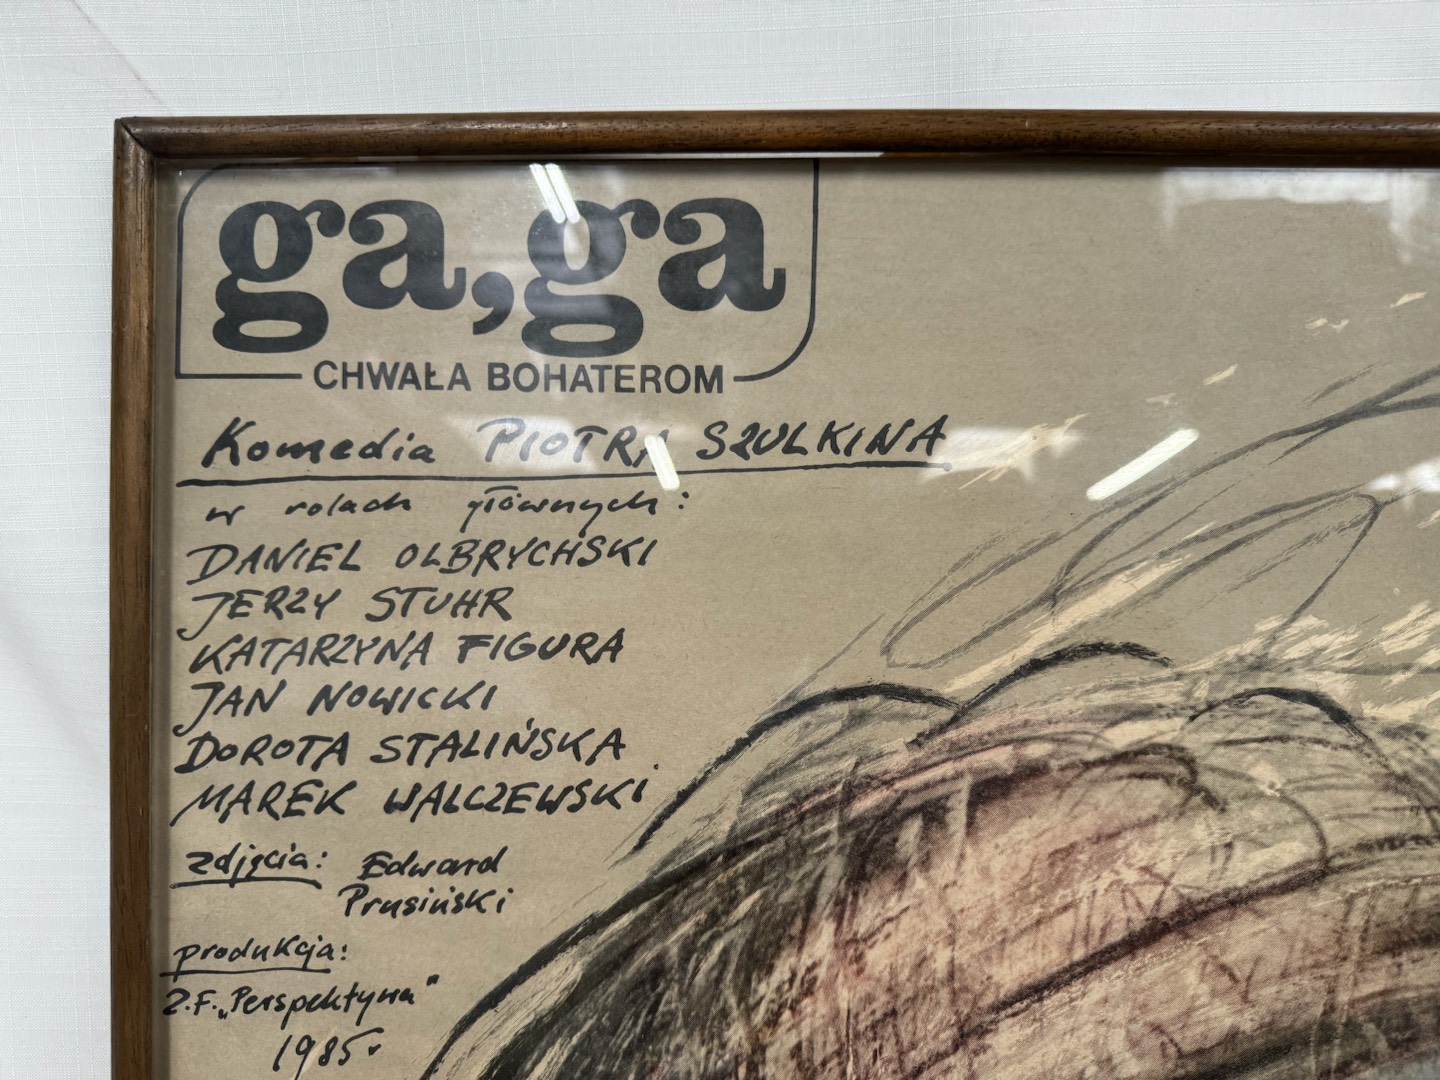 ga,ga
CHWAŁA BOHATEROM
Komedia PIOTRA SZULKINA
w rolach głównych:
DANIEL OLBRYCHSKI
JERZY STUHR
KATARZYNA FIGURA
JAN NOWICKI
DOROTA STALIŃSKA
MAREK WALCZEWSKI
zdjęcia: Edward
Prusiński
produkcja:
Z.F. „Perspektywa"
1985r